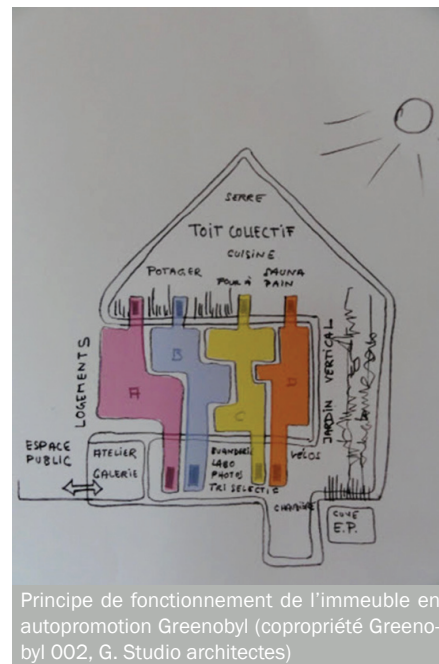 SERRE
TOIT COLLECTIF
CUISINE
POTAGER
FOUR À PAIN
SAUNA
LOGEMENTS
A
B
C
D
JARDIN VERTICAL
ESPACE
PUBLIC
ATELIER
GALERIE
BUANDERIE
LABO
PHOTOS
TRI SELECTIF
VELOS
CHAUDIÈRE
CUVE
E.P.
Principe de fonctionnement de l'immeuble en
autopromotion Greenobyl (copropriété Greeno-
byl 002, G. Studio architectes)